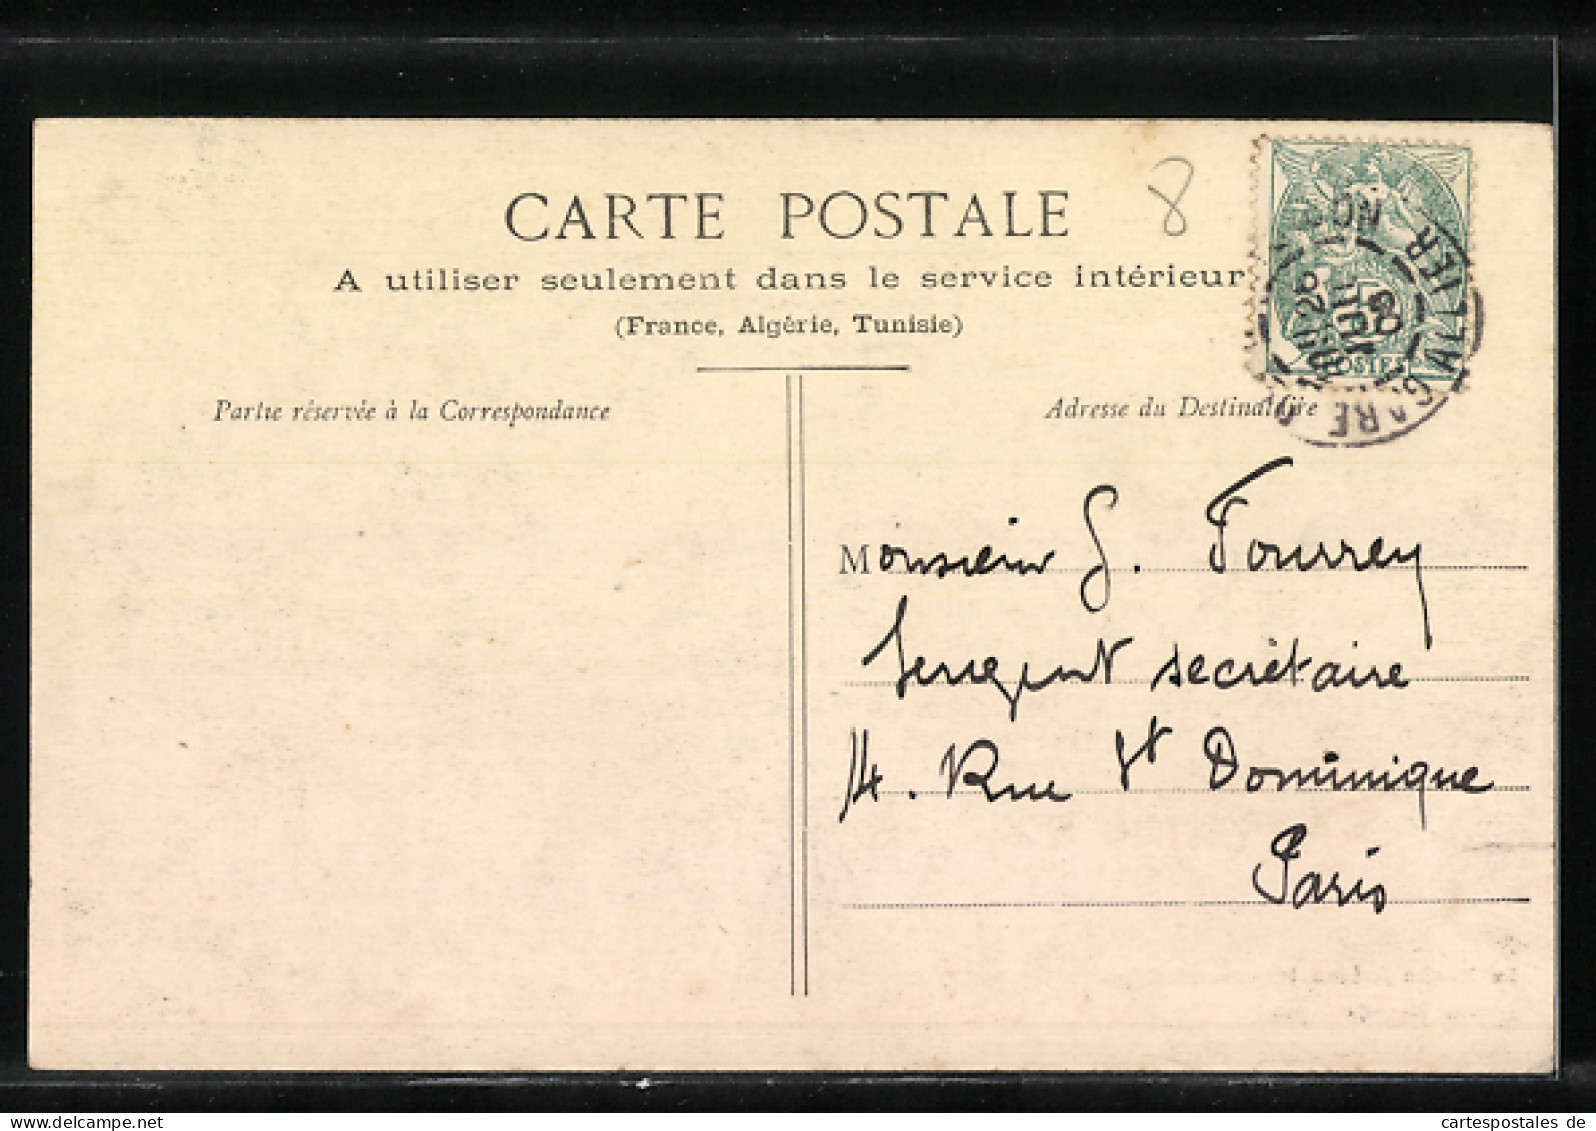 CARTE POSTALE
8
A utiliser seulement dans le service intérieur
(France, Algérie, Tunisie)
Partie réservée à la Correspondance
Adresse du Destinataire
POSTES
GARE
ALLIER
26
JUIL
08
Monsieur G. Fourrey
Sergent secrétaire
14. Rue St Dominique
Paris
cartespostales de